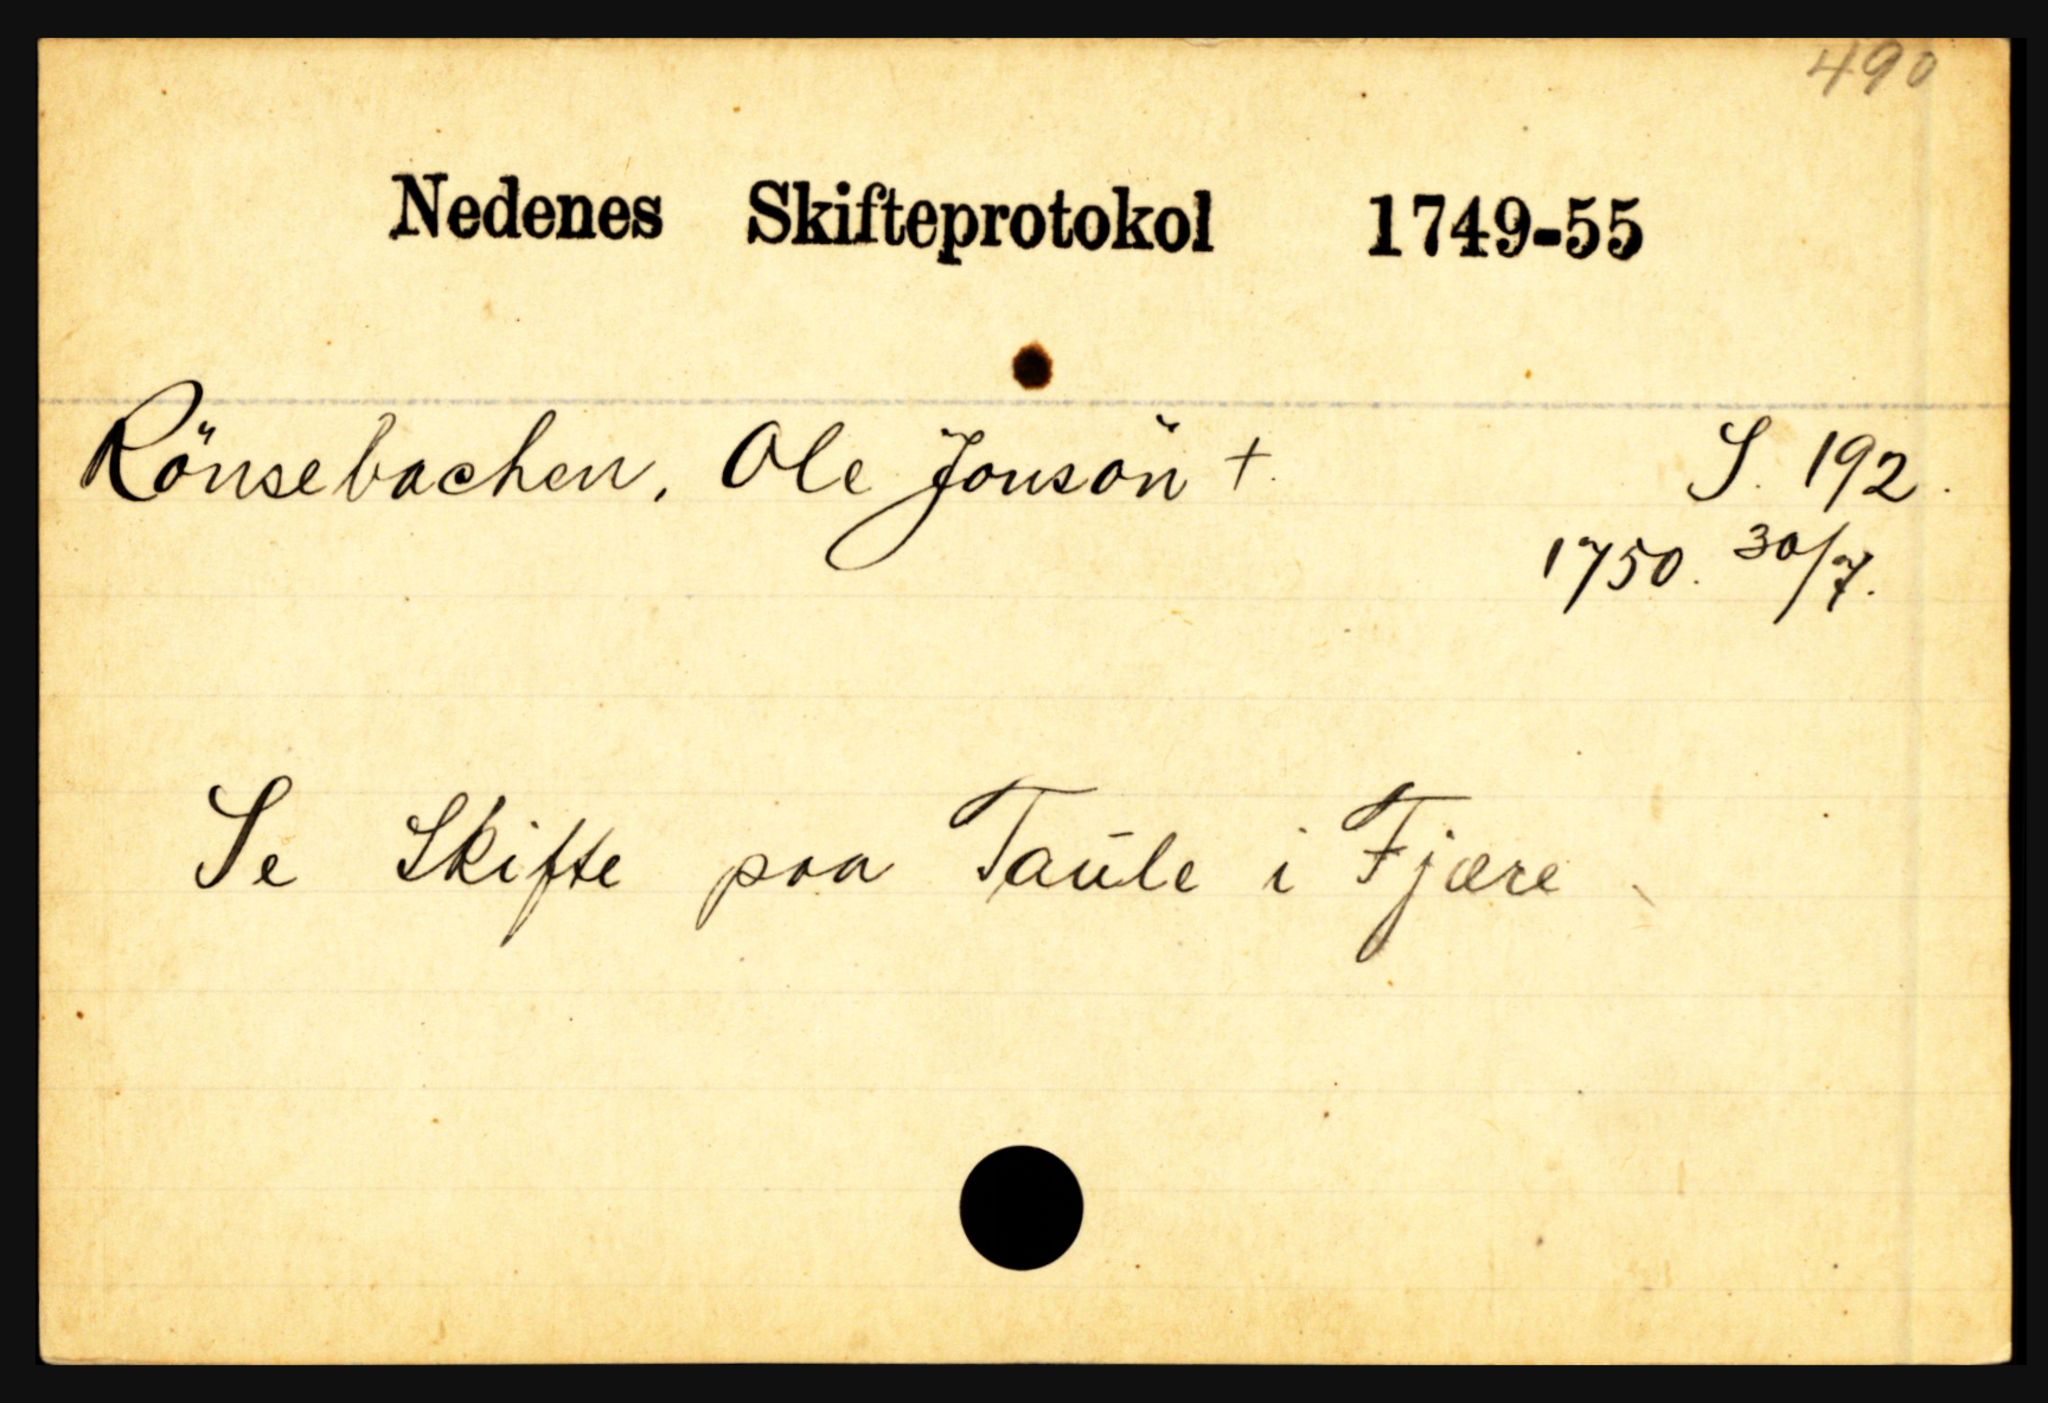 490
Nedenes Skifteprotokol 1749-55
Rönsebachen, Ole Jonsön +. S. 192.
1750. 30/7.
Se Skifte paa Taūle i Fjære